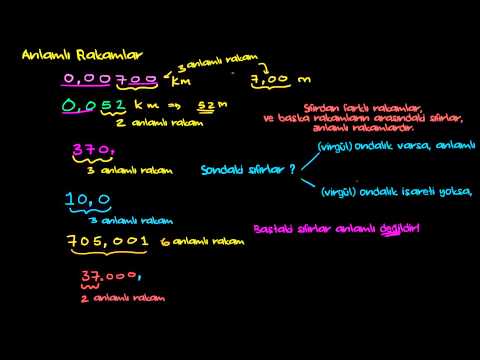 Anlamlı Rakamlar
3 anlamlı rakam
0,00700 km
7,00 m
0,052 km ⇒ 52 m
2 anlamlı rakam
Sıfırdan farklı rakamlar,
ve başka rakamların arasındaki sıfırlar,
anlamlı rakamlardır.
370,
3 anlamlı rakam
Sondaki sıfırlar ?
(virgül) ondalık varsa, anlamlı
(virgül) ondalık işareti yoksa,
10,0
3 anlamlı rakam
705,001 6 anlamlı rakam
Baştaki sıfırlar anlamlı değildir!
37.000,
2 anlamlı rakam